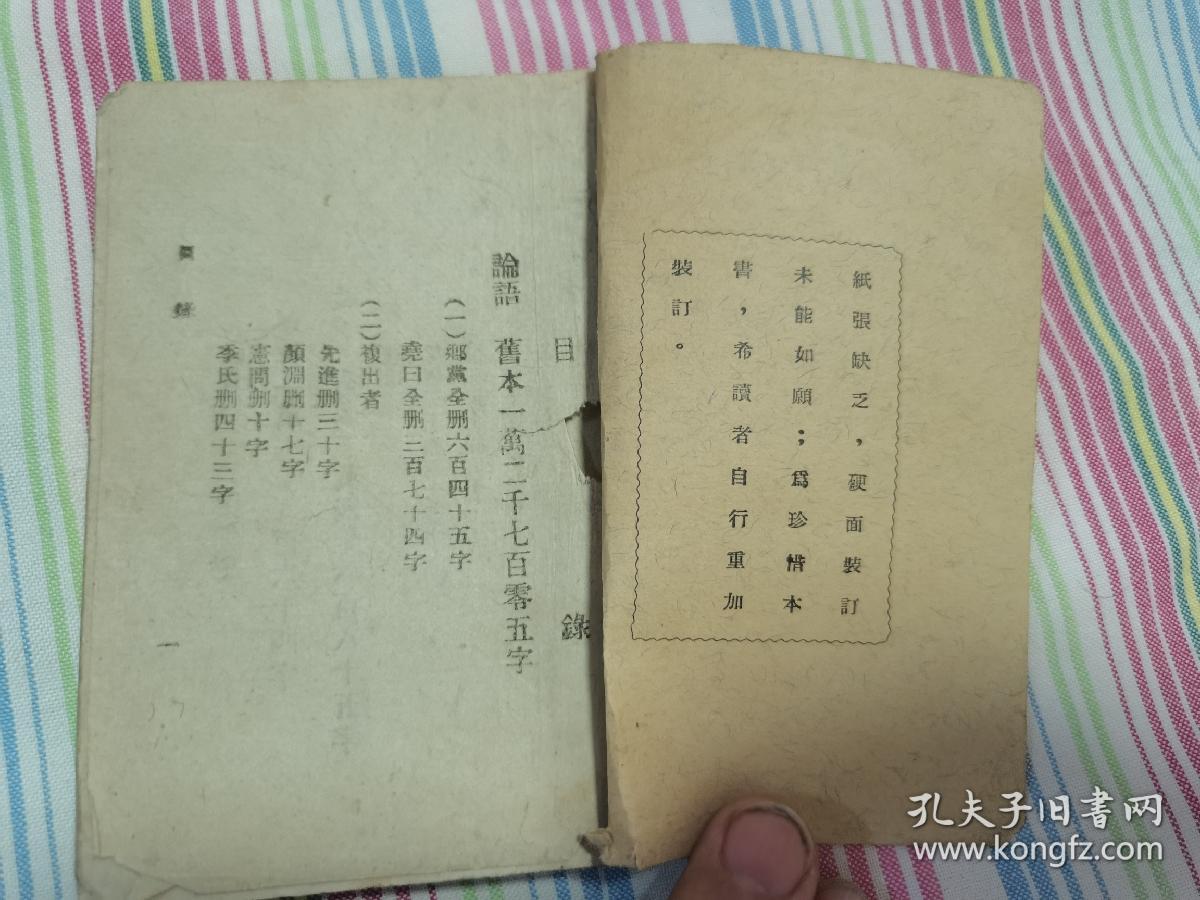 紙張缺乏，硬面裝訂
未能如願；爲珍惜本
書，希讀者自行重加
裝訂。
目錄
論語 舊本一萬二千七百零五字
(一)鄉黨全刪六百四十五字
堯曰全刪二百七十四字
(二)複出者
先進刪三十字
顏淵刪十七字
憲問刪十字
季氏刪四十三字
目錄
一
孔夫子旧书网
www.kongfz.com